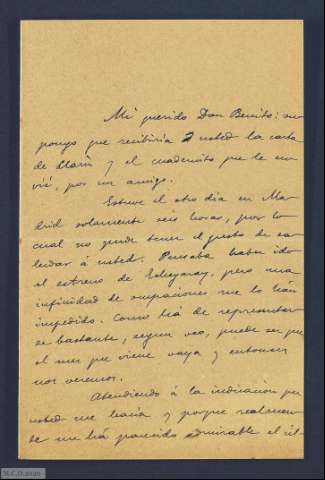 Mi querido Don Benito: su
pongo que recibiría usted la carta
de Marín y el cuadernito que le en
vié, por un amigo.
Estuve el otro día en Ma
drid solamente seis horas, por lo
cual no pude tener el gusto de sa
ludar á usted. Pensaba haber ido
al estreno de Echegaray, pero una
infinidad de ocupaciones me lo han
impedido. Como há de representar
se bastante, segun veo, puede ser que
el mes que viene vaya y entonces
nos veremos.
Atendiendo á la indicacion que
usted me hacía y porque realmen
te me há parecido admirable el úl-